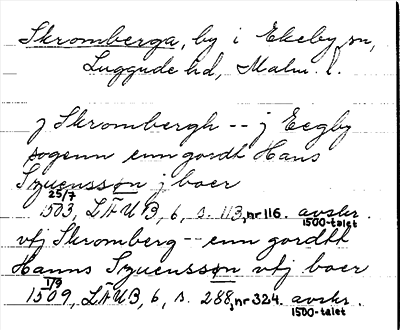 Skromberga, by i Ekeby sn,
Luggude hd, Malm. l.
j Skrombergh -- j Eegby
sogenn enn gordt Hans
Szuensson j boer
25/7
1503, LÄUB, 6, s. 113, nr 116. avskr.
1500-talet
vtj Skromberg -- enn gordtt
Hanns Szuensson vtj boer
1/9
1509, LÄUB, 6, s. 288, nr 324. avskr.
1500-talet